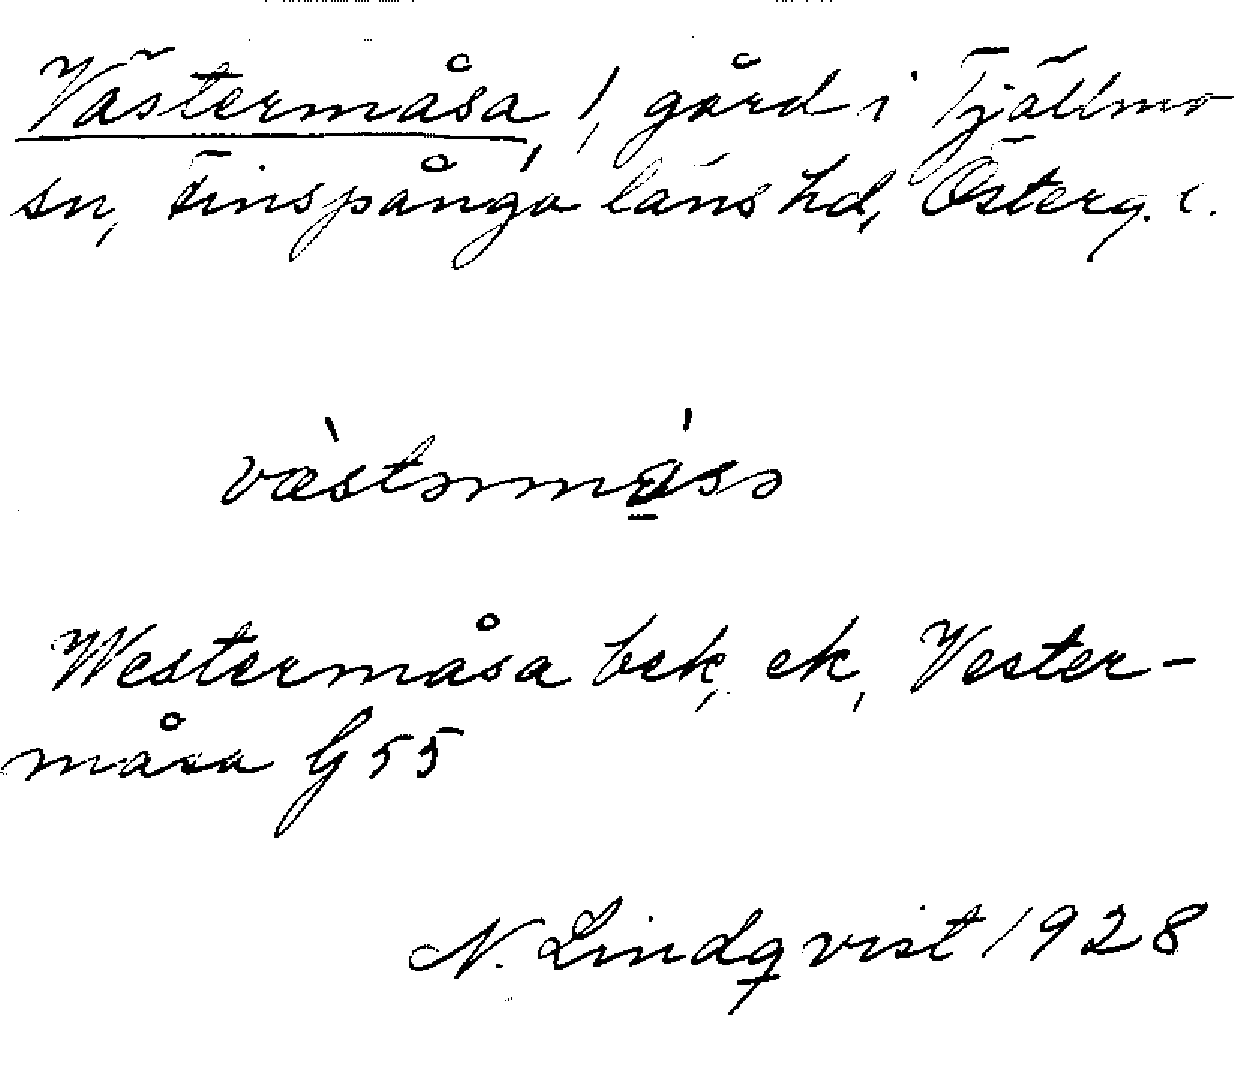 Västermåsa, 1, gård i Tjällmo
sn, Finspånga läns hd, Österg. l.
væ̀stərmǻ̲sə
Westermåsa bek, ek, Vester-
måsa G 55
N. Lindqvist 1928